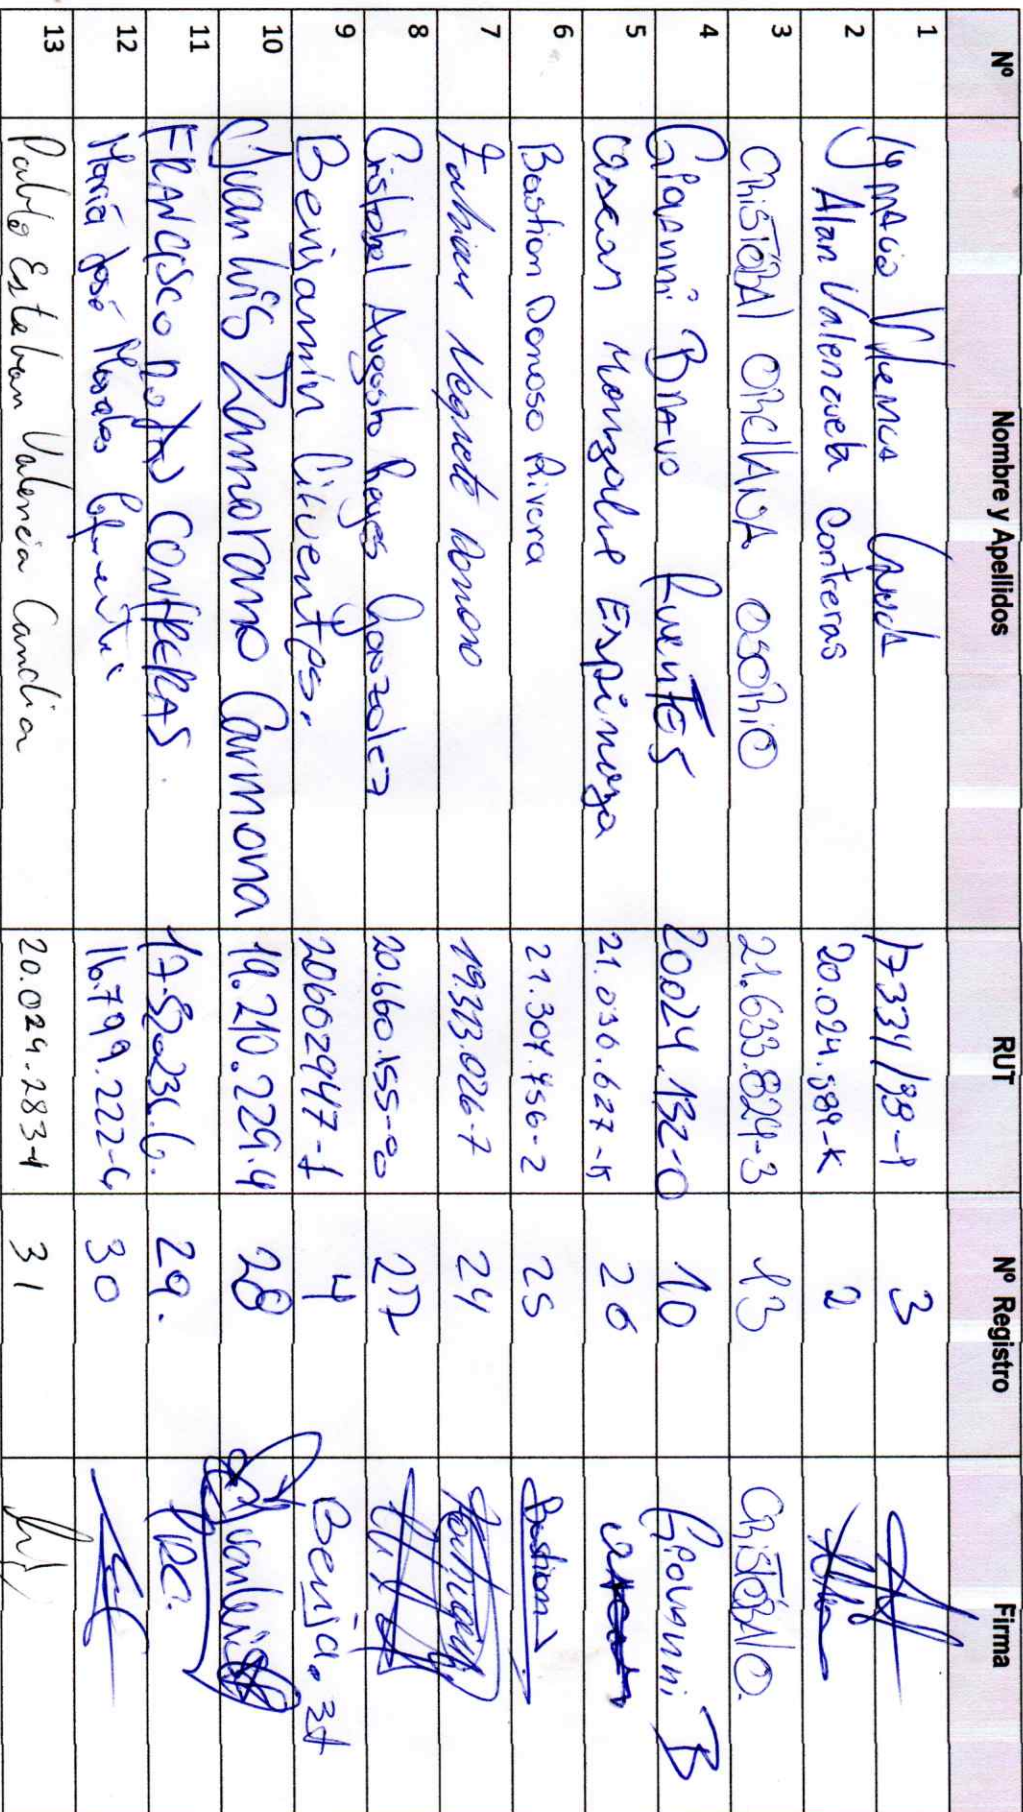 Nº Nombre y Apellidos RUT Nº Registro Firma
1 Ignacio Valencia 17334198-1 3
2 Alan Valenzuela Contreras 20.024.989-K 2
3 CRISTÓBAL ORELLANA OSORIO 21.633.824-3 13 CRISTÓBAL O.
4 Giovanni Bravo Fuentes 20.024.132-0 10 Giovanni B
5 Oscar Monzalve Espinoza 21.036.627-K 26
6 Bastion Donoso Rivera 21.304.456-2 25 Bastion
7 Fabian Negrete Donoso 19.313.026-7 24
8 Cristobal Augusto Reyes Gonzalez 20.660.155-0 27
9 Benjamin Cifuentes. 20602947-1 4 Benja. 34
10 Juan Luis Zamorano Carmona 19.210.229.4 28 Juan Luis
11 FRANCISCO ROJAS CONTRERAS. 17.520236.6. 29. FRC.
12 María José Morales 16.799.222-4 30
13 Pablo Esteban Valencia Candia 20.024.283-1 31